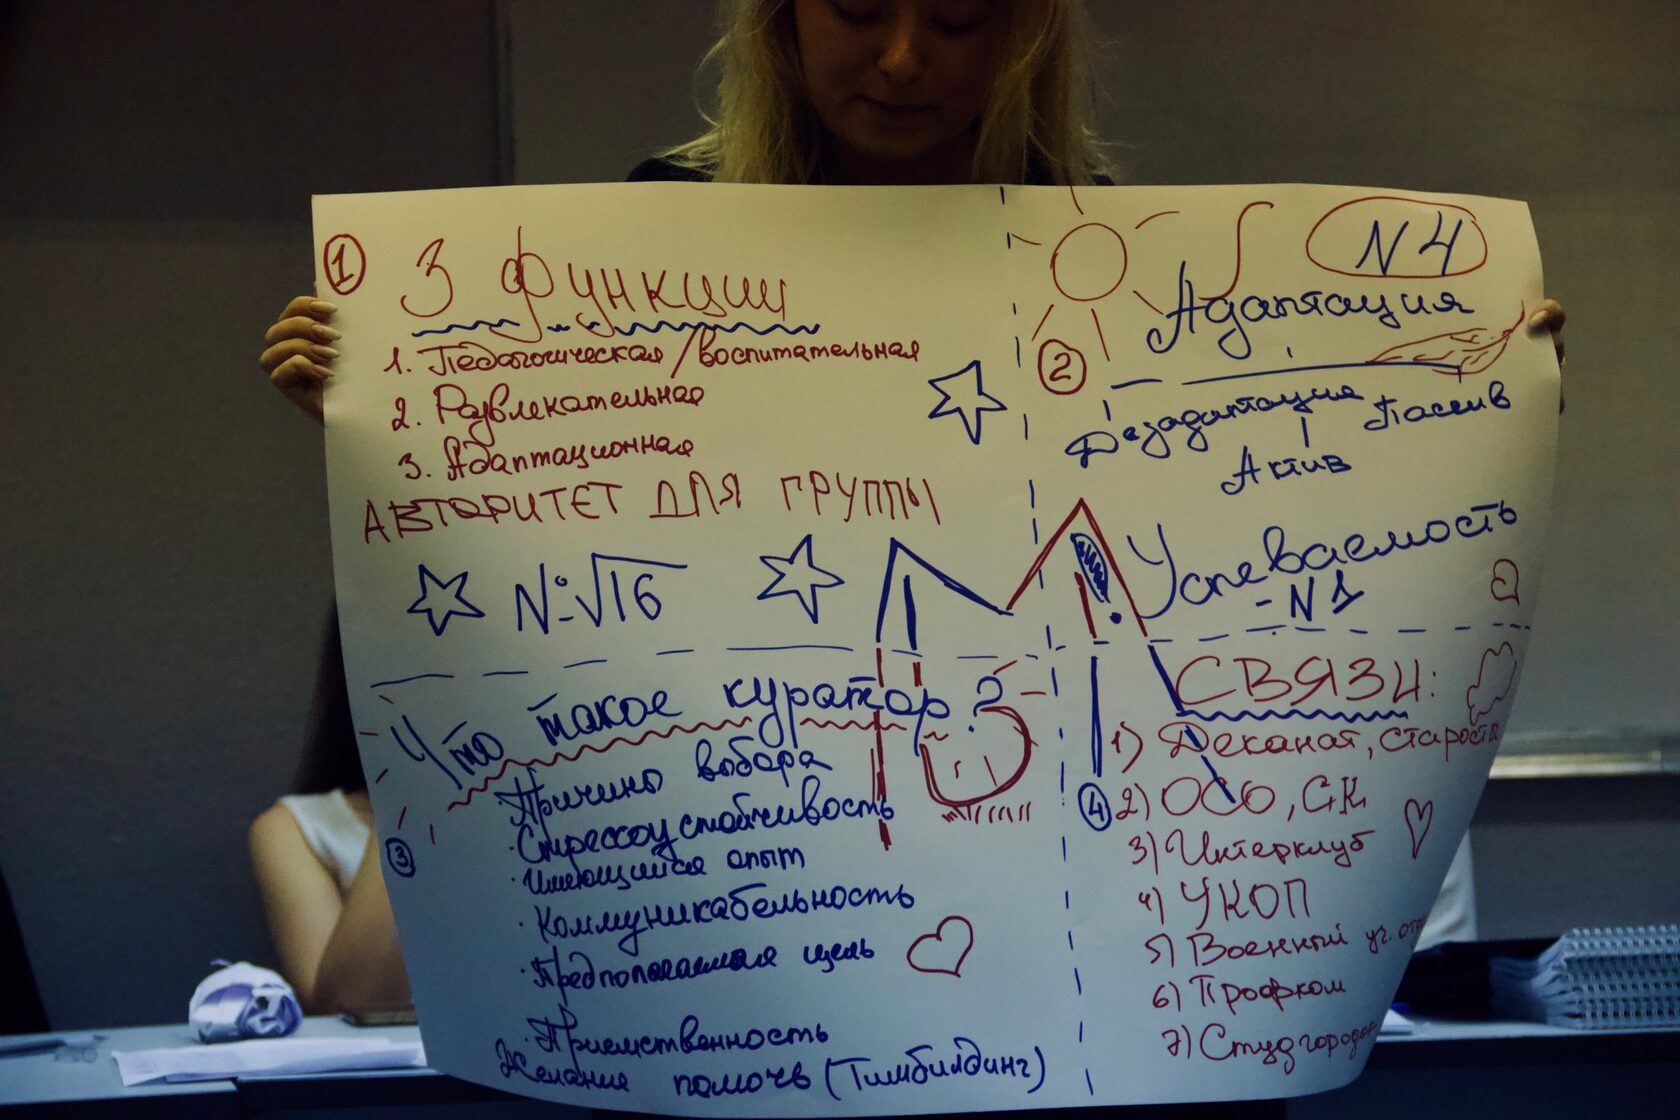 1
3 функции
1. Педагогическая / воспитательная
2. Развлекательная
3. Адаптационная
АВТОРИТЕТ ДЛЯ ГРУППЫ
№ √16
N 4
2
Адаптация
Дезадаптация
Пассив
Актив
Успеваемость
- N 1
3
Что такое куратор?
· Причины выбора
· Стрессоустойчивость
· Имеющийся опыт
· Коммуникабельность
· Предполагаемая цель
· Приемственность
Желание помочь (Тимбилдинг)
4
СВЯЗИ:
1) Деканат, староста
2) ОСО, СК
3) Интерклуб
4) УКОП
5) Военный уч.
6) Профком
7) Студгородок